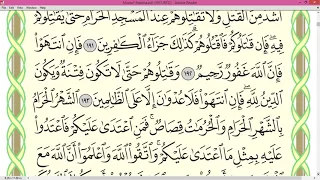 أَشَدُّ مِنَ ٱلْقَتْلِ وَلَا تُقَٰتِلُوهُمْ عِندَ ٱلْمَسْجِدِ ٱلْحَرَامِ حَتَّىٰ يُقَٰتِلُوكُمْ
فِيهِ فَإِن قَٰتَلُوكُمْ فَٱقْتُلُوهُمْ كَذَٰلِكَ جَزَآءُ ٱلْكَٰفِرِينَ ١٩١ فَإِنِ ٱنتَهَوْا۟
فَإِنَّ ٱللَّهَ غَفُورٌ رَّحِيمٌ ١٩٢ وَقَٰتِلُوهُمْ حَتَّىٰ لَا تَكُونَ فِتْنَةٌ وَيَكُونَ
ٱلدِّينُ لِلَّهِ فَإِنِ ٱنتَهَوْا۟ فَلَا عُدْوَٰنَ إِلَّا عَلَى ٱلظَّٰلِمِينَ ١٩٣ ٱلشَّهْرُ ٱلْحَرَامُ
بِٱلشَّهْرِ ٱلْحَرَامِ وَٱلْحُرُمَٰتُ قِصَاصٌ فَمَنِ ٱعْتَدَىٰ عَلَيْكُمْ فَٱعْتَدُوا۟
عَلَيْهِ بِمِثْلِ مَا ٱعْتَدَىٰ عَلَيْكُمْ وَٱتَّقُوا۟ ٱللَّهَ وَٱعْلَمُوٓا۟ أَنَّ ٱللَّهَ مَعَ